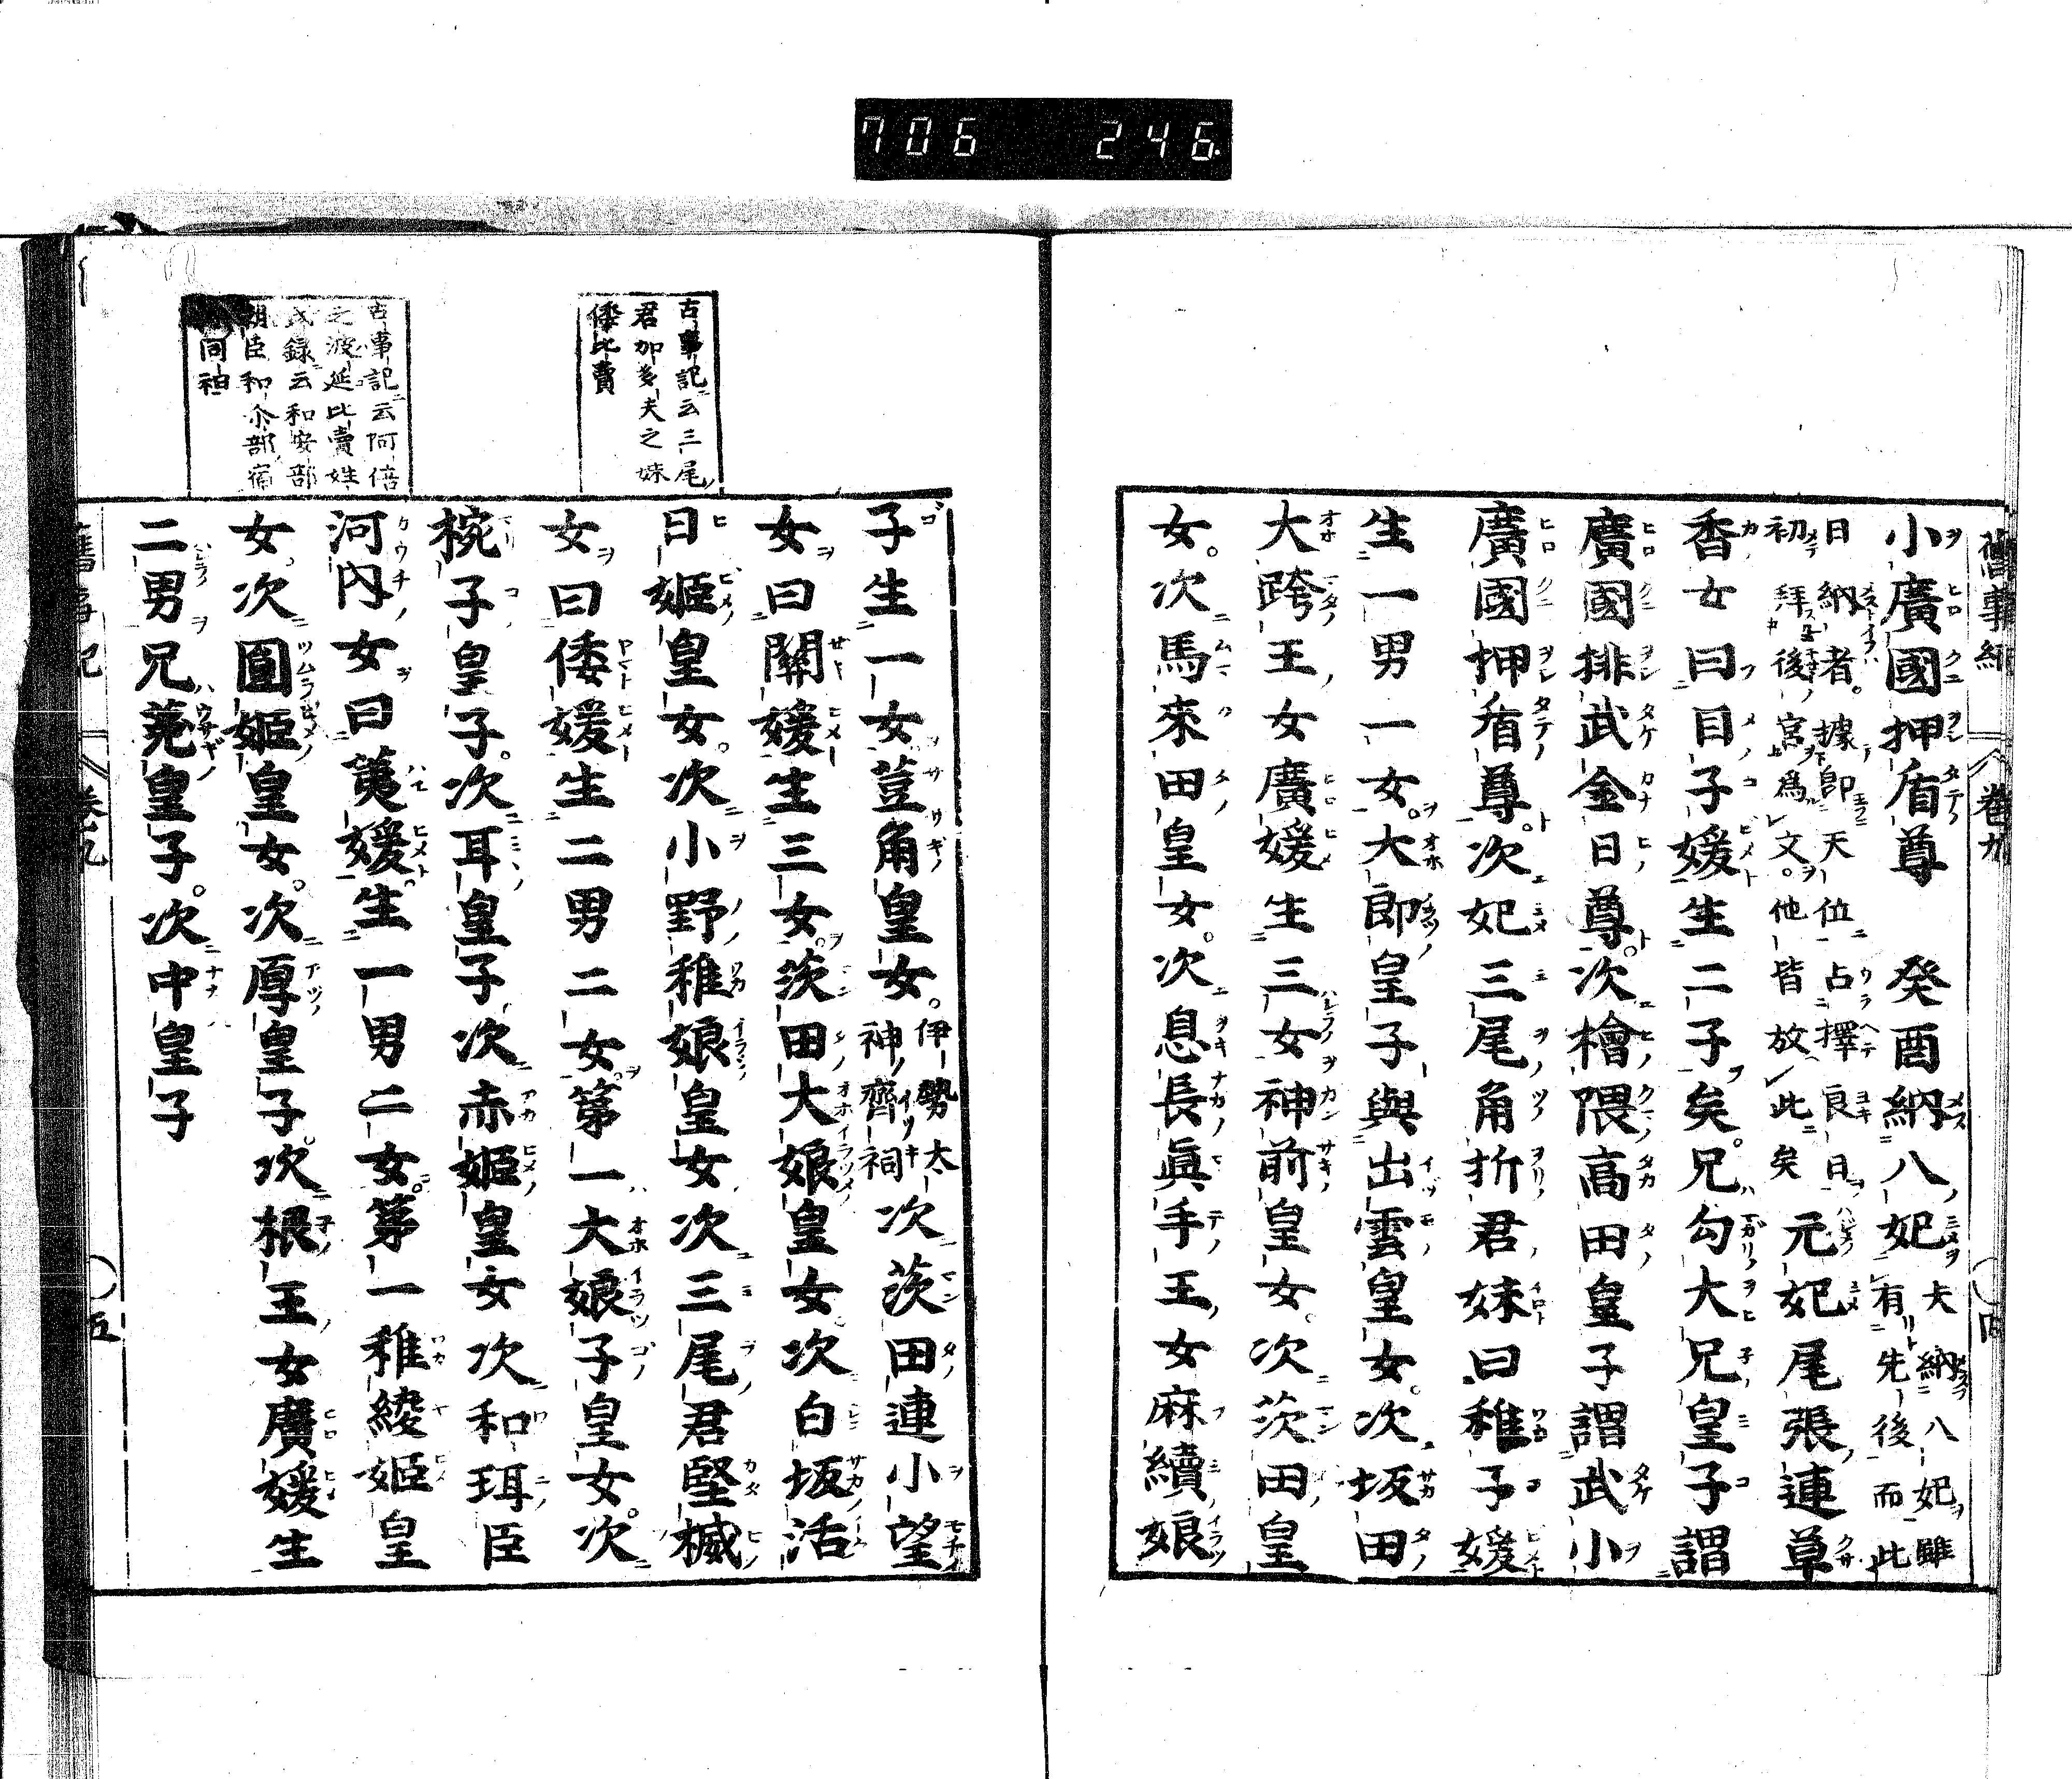 706 246
舊事紀 卷九
小廣國押盾尊 癸酉納八妃 夫納八妃雖
有先後而此
日納者據即天位占擇良日
初拜後宮爲文他皆放此矣 元妃尾張連草
香女曰目子媛生二子矣兄勾大兄皇子謂
廣國排武金日尊次檜隈高田皇子謂武小
廣國押盾尊次妃三尾角折君妹曰稚子媛
生一男一女大郎皇子與出雲皇女次坂田
大跨王女廣媛生三女神前皇女次茨田皇
女次馬來田皇女次息長眞手王女麻續娘
子生一女荳角皇女 伊勢太
神齊祠 次茨田連小望
女曰關媛生三女茨田大娘皇女次白坂活
日姬皇女次小野稚娘皇女次三尾君堅槭
女曰倭媛生二男二女第一大娘子皇女次
椀子皇子次耳皇子次赤姬皇女次和珥臣
河內女曰荑媛生一男二女第一稚綾姬皇
女次圓姬皇女次厚皇子次根王女廣媛生
二男兄菟皇子次中皇子
古事記云三尾
君加多夫之妹
倭比賣
古事記云阿倍
之波延比賣姓
氏錄云和安部
朝臣和尒部宿
同祖
五